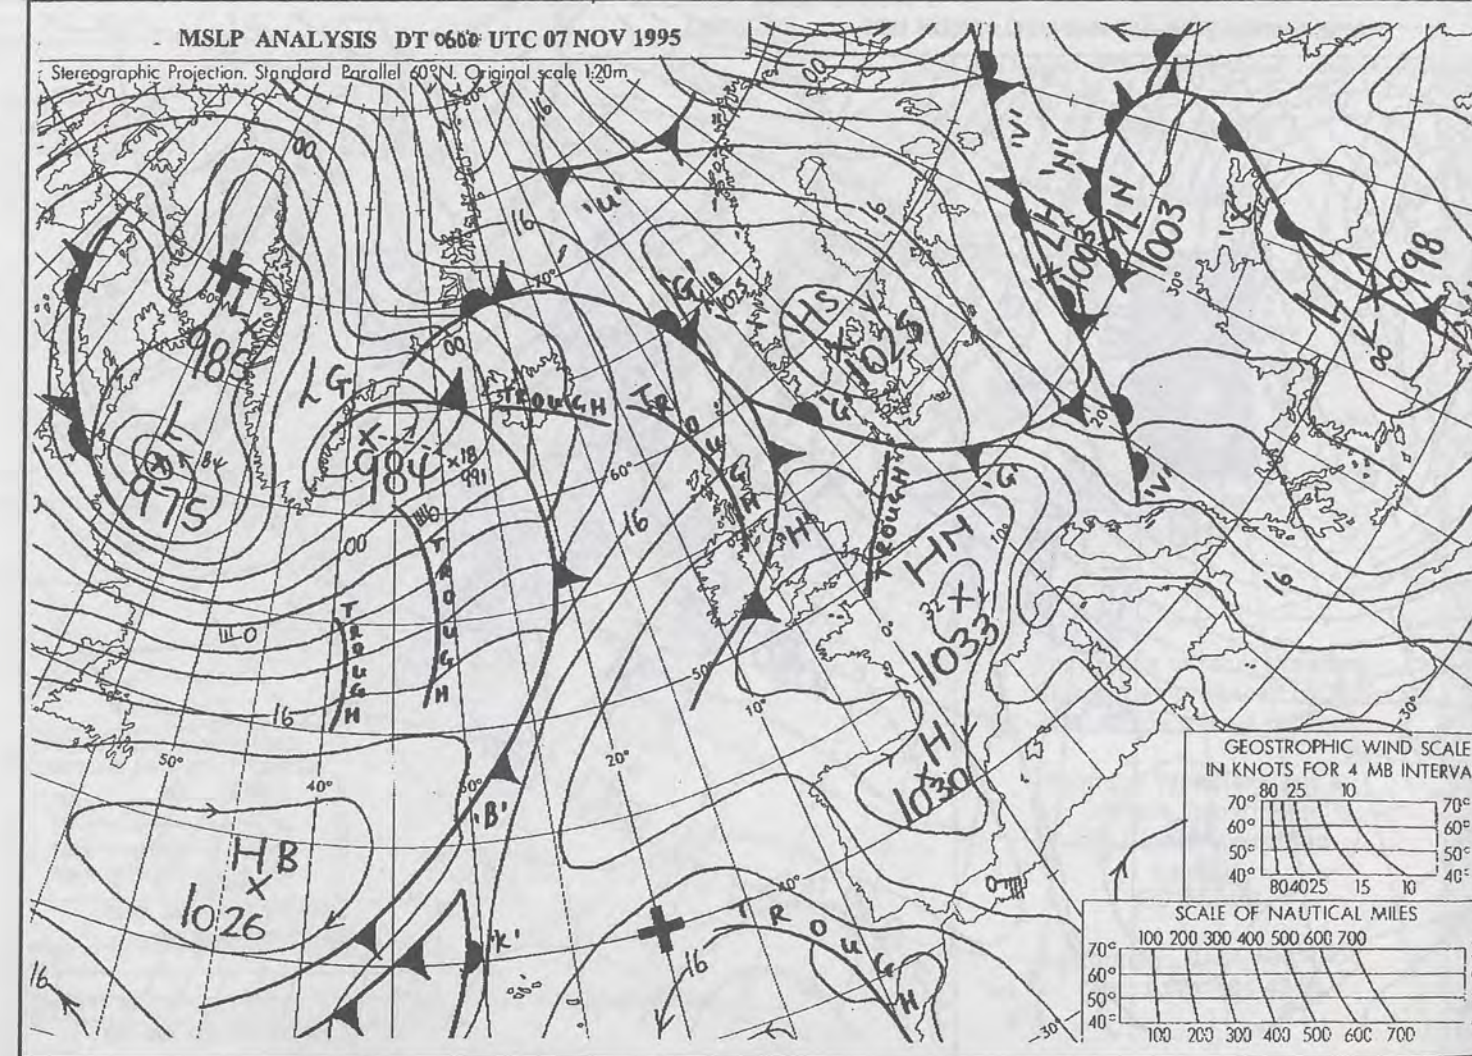 MSLP ANALYSIS DT 0600 UTC 07 NOV 1995
Stereographic Projection. Standard Parallel 60°N. Original scale 1:20m
00
16
00
'U'
16
16
'V'
'N'
H
1003
LN
1003
30°
'X'
L
998
00
L
985
60°
70°
'G'
1025
HS
1025
LG
00
TROUGH
TROUGH
'G'
20°
L
975
984
x18
991
60°
16
'H'
TROUGH
'G'
'V'
10°
16
HN
32
1033
0°
00
TROUGH
TROUGH
16
50°
10°
H
1030
30°
50°
40°
30°
20°
'B'
HB
1026
'K'
16
40°
TROUGH
16
30°
GEOSTROPHIC WIND SCALE
IN KNOTS FOR 4 MB INTERVA
80 25 10
70° 70°
60° 60°
50° 50°
40° 40°
80 40 25 15 10
SCALE OF NAUTICAL MILES
100 200 300 400 500 600 700
70°
60°
50°
40°
100 200 300 400 500 600 700